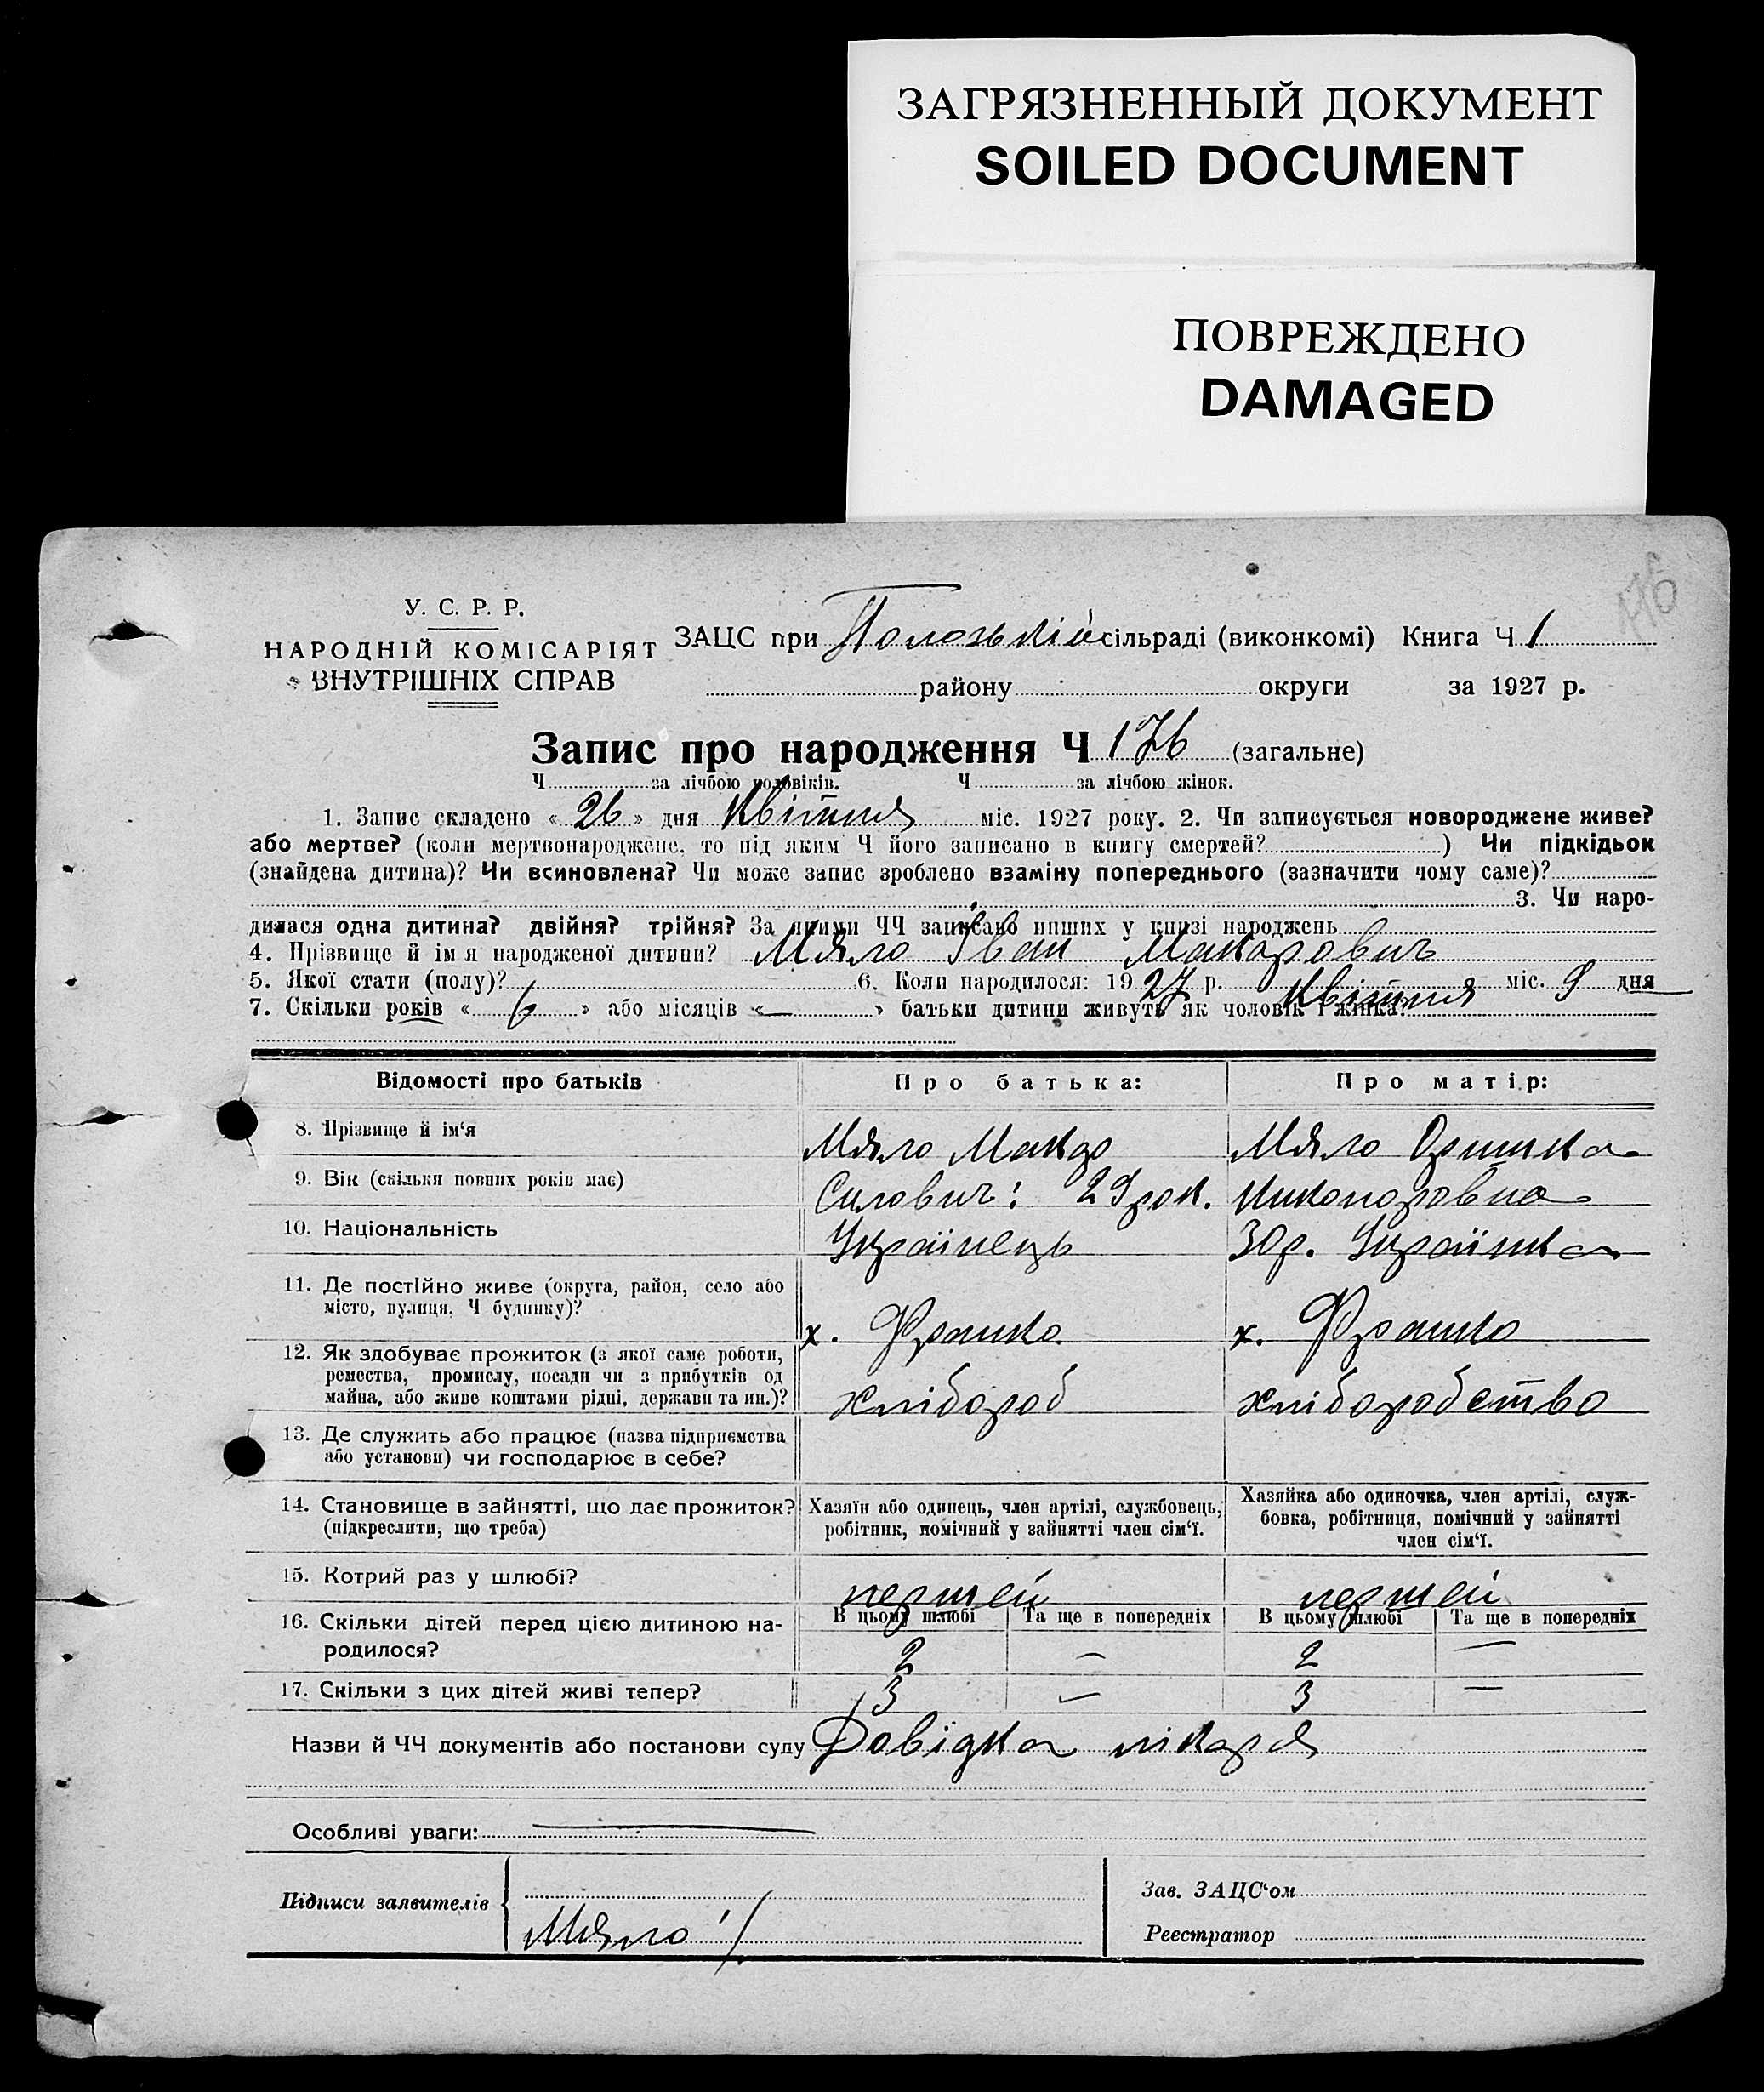 ЗАГРЯЗНЕННЫЙ ДОКУМЕНТ
SOILED DOCUMENT
ПОВРЕЖДЕНО
DAMAGED
У. С. Р. Р.
НАРОДНІЙ КОМІСАРІЯТ
ВНУТРІШНІХ СПРАВ
ЗАЦС при сільраді (виконкомі) Книга Ч 1
району округи за 1927 р.
Запис про народження Ч 176 (загальне)
Ч за лічбою чоловіків. Ч за лічбою жінок.
1. Запис складено « 26 » дня Квітня міс. 1927 року. 2. Чи записується новороджене живе?
або мертве? (коли мертвонароджене, то під яким Ч його записано в книгу смертей? ) Чи підкідьок
(знайдена дитина)? Чи всиновлена? Чи може запис зроблено взаміну попереднього (зазначити чому саме)?
3. Чи наро-
дилася одна дитина? двійня? трійня? За якими ЧЧ записано инших у книзі народжень
4. Прізвище й ім я народженої дитини? Мяло Іван Макарович
5. Якої стати (полу)? 6. Коли народилося: 1927 р. Квітня міс. 9 дня
7. Скільки років « 6 » або місяців « — » батьки дитини живуть як чоловік і жінка?
Відомості про батьків Про батька: Про матір:
8. Прізвище й ім'я Мяло Макар Мяло Оришка
9. Вік (скільки повних років має) Силович: 29 рок. Никоноровна
10. Національність Українець 30 р. Українка
11. Де постійно живе (округа, район, село або
місто, вулиця, Ч будинку)? х. Франко х. Франко
12. Як здобуває прожиток (з якої саме роботи,
ремества, промислу, посади чи з прибутків од
майна, або живе коштами рідні, держави та ин.)? хлібороб хліборобство
13. Де служить або працює (назва підприємства
або установи) чи господарює в себе?
14. Становище в зайнятті, що дає прожиток?
(підкреслити, що треба)
Хазяїн або одинець, член артілі, службовець,
робітник, помічний у зайнятті член сім'ї.
Хазяйка або одиночка, член артілі, служ-
бовка, робітниця, помічний у зайнятті
член сім'ї.
15. Котрий раз у шлюбі? першей першей
16. Скільки дітей перед цією дитиною на-
родилося?
В цьому шлюбі Та ще в попередніх В цьому шлюбі Та ще в попередніх
2 — 2 —
17. Скільки з цих дітей живі тепер? 3 — 3 —
Назви й ЧЧ документів або постанови суду Довідка лікаря
Особливі уваги:
Підписи заявителів
Мяло
Зав. ЗАЦС'ом
Реєстратор